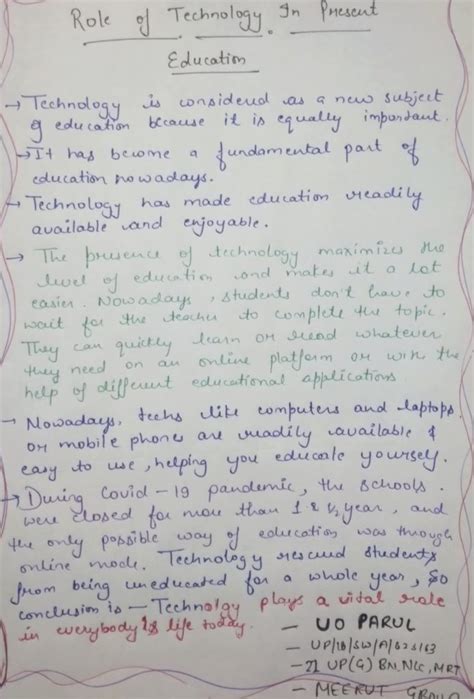 Role of Technology In Present
Education
→ Technology is considered as a new subject
of education because it is equally important.
→ It has become a fundamental part of
education nowadays.
→ Technology has made education readily
available and enjoyable.
→ The presence of technology maximizes the
level of education and makes it a lot
easier. Nowadays, students don't have to
wait for the teacher to complete the topic.
They can quickly learn or read whatever
they need on an online platform or with the
help of different educational applications.
→ Nowadays, techs like computers and laptops
or mobile phones are readily available &
easy to use, helping you educate yourself.
→ During Covid-19 pandemic, the schools
were closed for more than 1 & ½ year, and
the only possible way of education was through
online mode. Technology rescued students
from being uneducated for a whole year, so
conclusion is — Technology plays a vital role
in everybody's life today.
— UO PARUL
— UP/18/SW/A/
— 21 UP(G) BN.NCC, MRT
— MEERUT GROUP